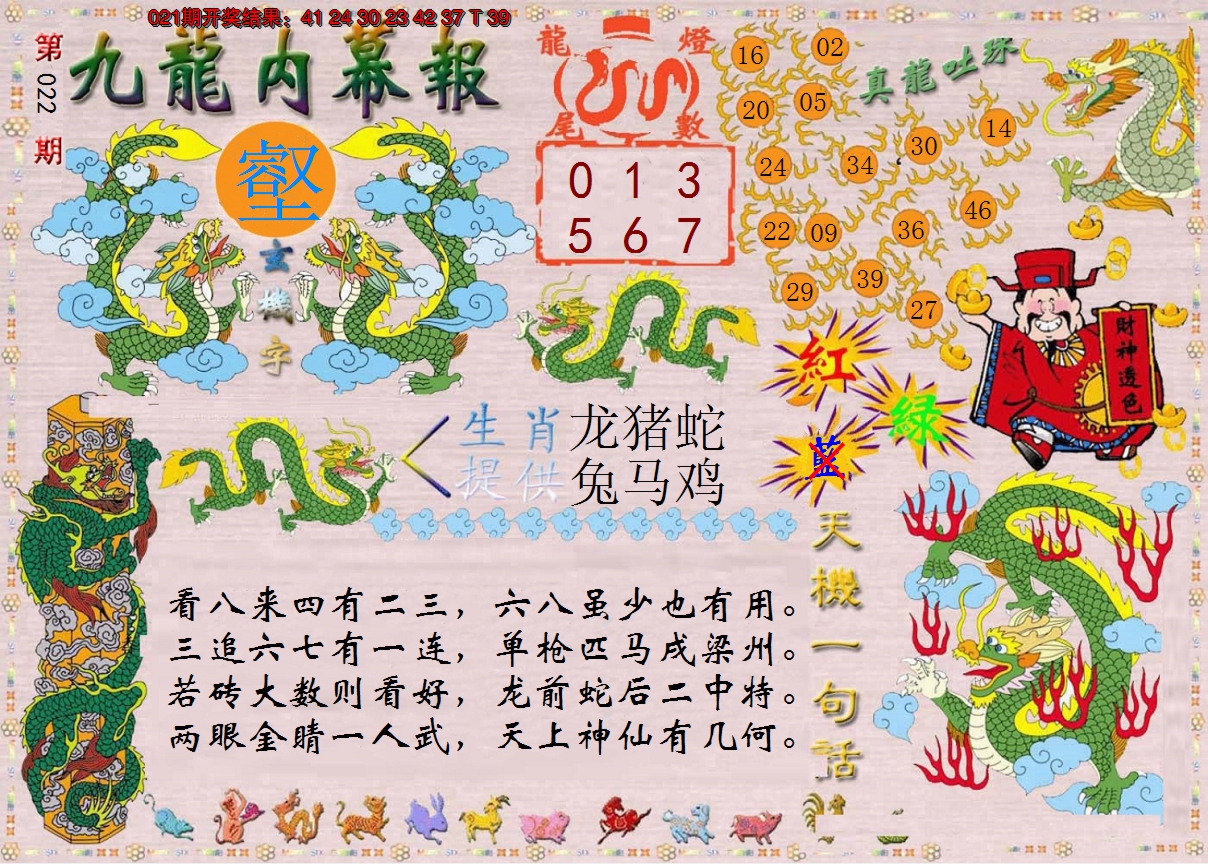 021期开奖结果：41 24 30 23 42 37 T 39
第022期
九龍内幕報
壑
玄機字
龍燈
尾數
0 1 3
5 6 7
真龍吐珠
16
02
20
05
14
30
24
34
46
22
09
36
39
29
27
紅
綠
藍
財神透色
生肖
提供
龙猪蛇
兔马鸡
天機一句話
看八来四有二三，六八虽少也有用。
三追六七有一连，单枪匹马戌梁州。
若砖大数则看好，龙前蛇后二中特。
两眼金睛一人武，天上神仙有几何。